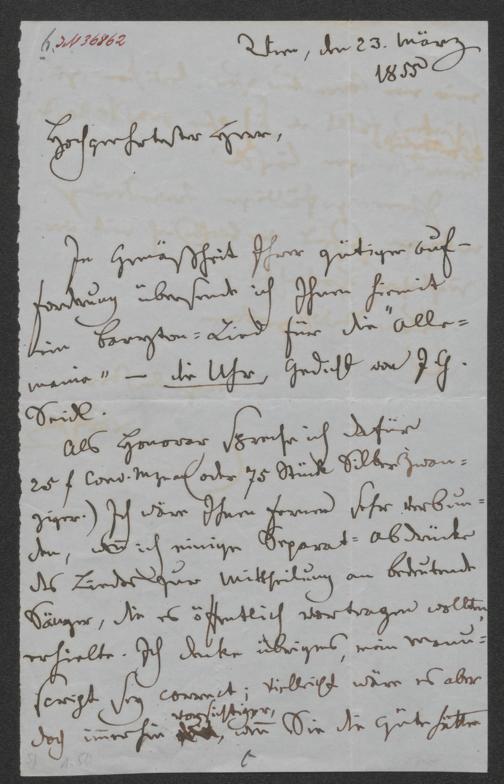 h. IN 36862
Wien, den 23. März
1855
Hochgeehrtester Herr,
In Gemäßheit Ihrer gütigen Auf-
forderung übersende ich Ihnen hiemit
ein Baryton-Lied für die "Alle-
mania" — die Uhr, Gedicht von J. G.
Seidl.
Als Honorar spreche ich dafür
25 f Conv. (oder 75 Stück Silberzwan-
ziger.) Ich wäre Ihnen ferner sehr verbun-
den, ich einige Separat-Abdrücke
des Liedes zur Mittheilung an bedeutende
Sänger, die es öffentlich vortragen wollten,
erhielte. Ich denke übrigens, mein Manu-
script sey correct; vielleicht wäre es aber
doch immerhin vorsichtiger, wenn Sie die Güte hätten